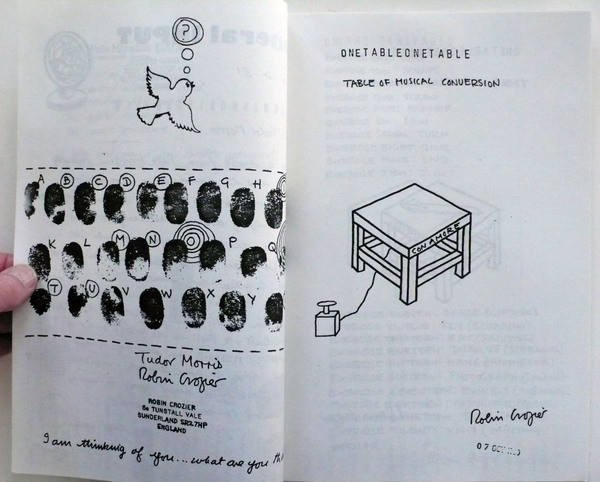 ?
A B C D E F G H
K L M N P Q
T U V W X Y
Tudor Morris
Robin Crozier
ROBIN CROZIER
5a TUNSTALL VALE
SUNDERLAND SR27HP
ENGLAND
I am thinking of you... what are you
ONETABLEONETABLE
TABLE OF MUSICAL CONVERSION
CON AMORE
Robin Crozier
07 OCT